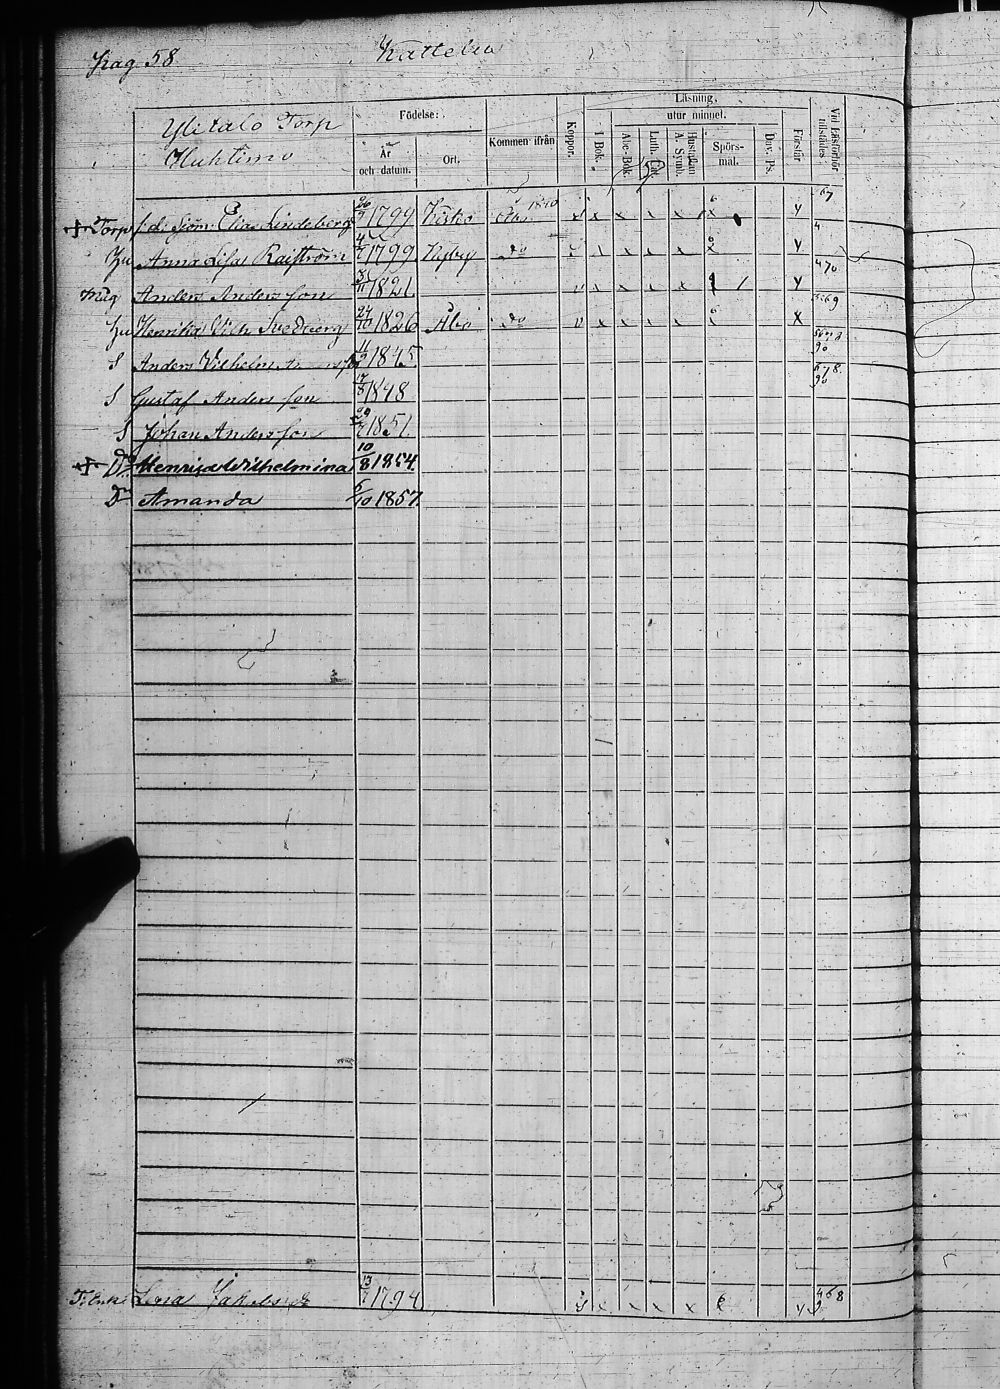 Pag 58 Kattelus
Ylitalo Torp
Huhtimo
Födelse:
År och datum.
Ort.
Kommen ifrån
Koppor.
Läsning,
utur minnet.
I Bok.
Abc-Bok
Luth. Cat.
Hustaflan A. Symb.
Spörs-mål.
Dav. Ps.
Förstår
Vid Läsförhör tillstädes
Torp f.d. Sjöm Elias Lindeberg 26/9 1799 Kisko Åbo 1840 x x x x x y 67
Hu Anna Lisa 1799 Nyby do x x x x y 4
måg Anders Andersson 1821 x x x x y 470
Hu Henrika Wilh Svedberg 24/10 1826 Åbo do x x x x x 69
S Anders Vilhelm 11/9 1845
S Gustaf Andersson 17/8 1848
S Johan Andersson 1851
Dr Henrica Wilhelmina 10/8 1854.
Dr Amanda 5/10 1857.
Lena Jakobsdr 1794 x x x x 6 y 468